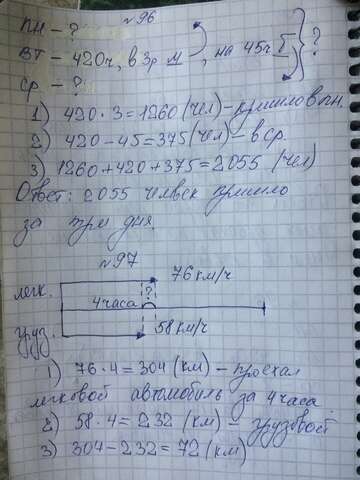 №96
ПН – ?
ВТ – 420ч, в 3р м, на 45ч б ?
СР – ?
1) 420 · 3 = 1260 (чел) – пришло в пн.
2) 420 – 45 = 375 (чел) – в ср.
3) 1260 + 420 + 375 = 2055 (чел)
Ответ: 2055 человек пришло
за три дня.
№97
76 км/ч
легк.
4 часа ?
груз.
58 км/ч
1) 76 · 4 = 304 (км) – проехал
легковой автомобиль за 4 часа.
2) 58 · 4 = 232 (км) – грузовой
3) 304 – 232 = 72 (км)